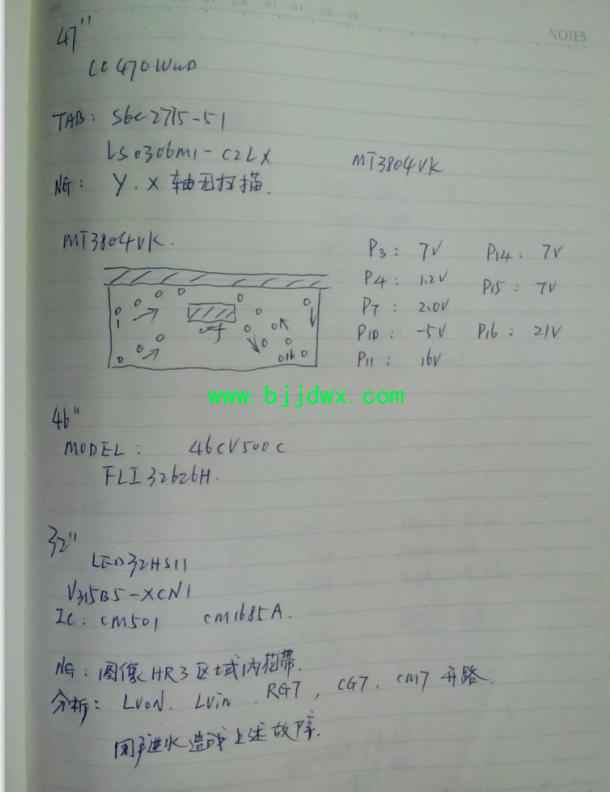 NOTES
47"
LC470WUD
TAB: S6C2715-51
LS0306M1-C2LX
MT3804VK
NG: Y.X轴无扫描.
MT3804VK.
P3: 7V P14: 7V
P4: 1.2V P15: 7V
P7: 2.0V
P10: -5V P16: 21V
P11: 16V
1
16
www.bjjdwx.com
46"
MODEL: 46CV500C
FLI32626H.
32"
LED32HS11
V315B5-XCN1
IC: CM501 CM1685A.
NG: 图像HR3区域内花带.
分析: LVON. LVin. RGT, CGT. CM7 开路.
因进水造成上述故障.